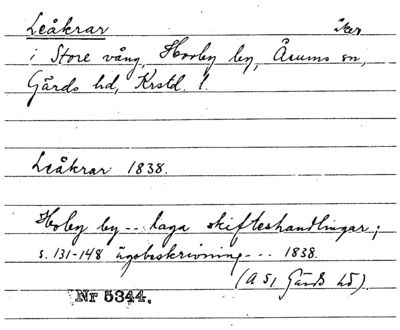 Leåkrar åker
i Store vång, Hovby by, Åsums sn,
Gärds hd, Krstd. l.
Leåkrar 1838.
Hovby by -- laga skifteshandlingar;
s. 131-148 ägobeskrivning --- 1838.
(A 51 Gärds hd).
Nr 5344.